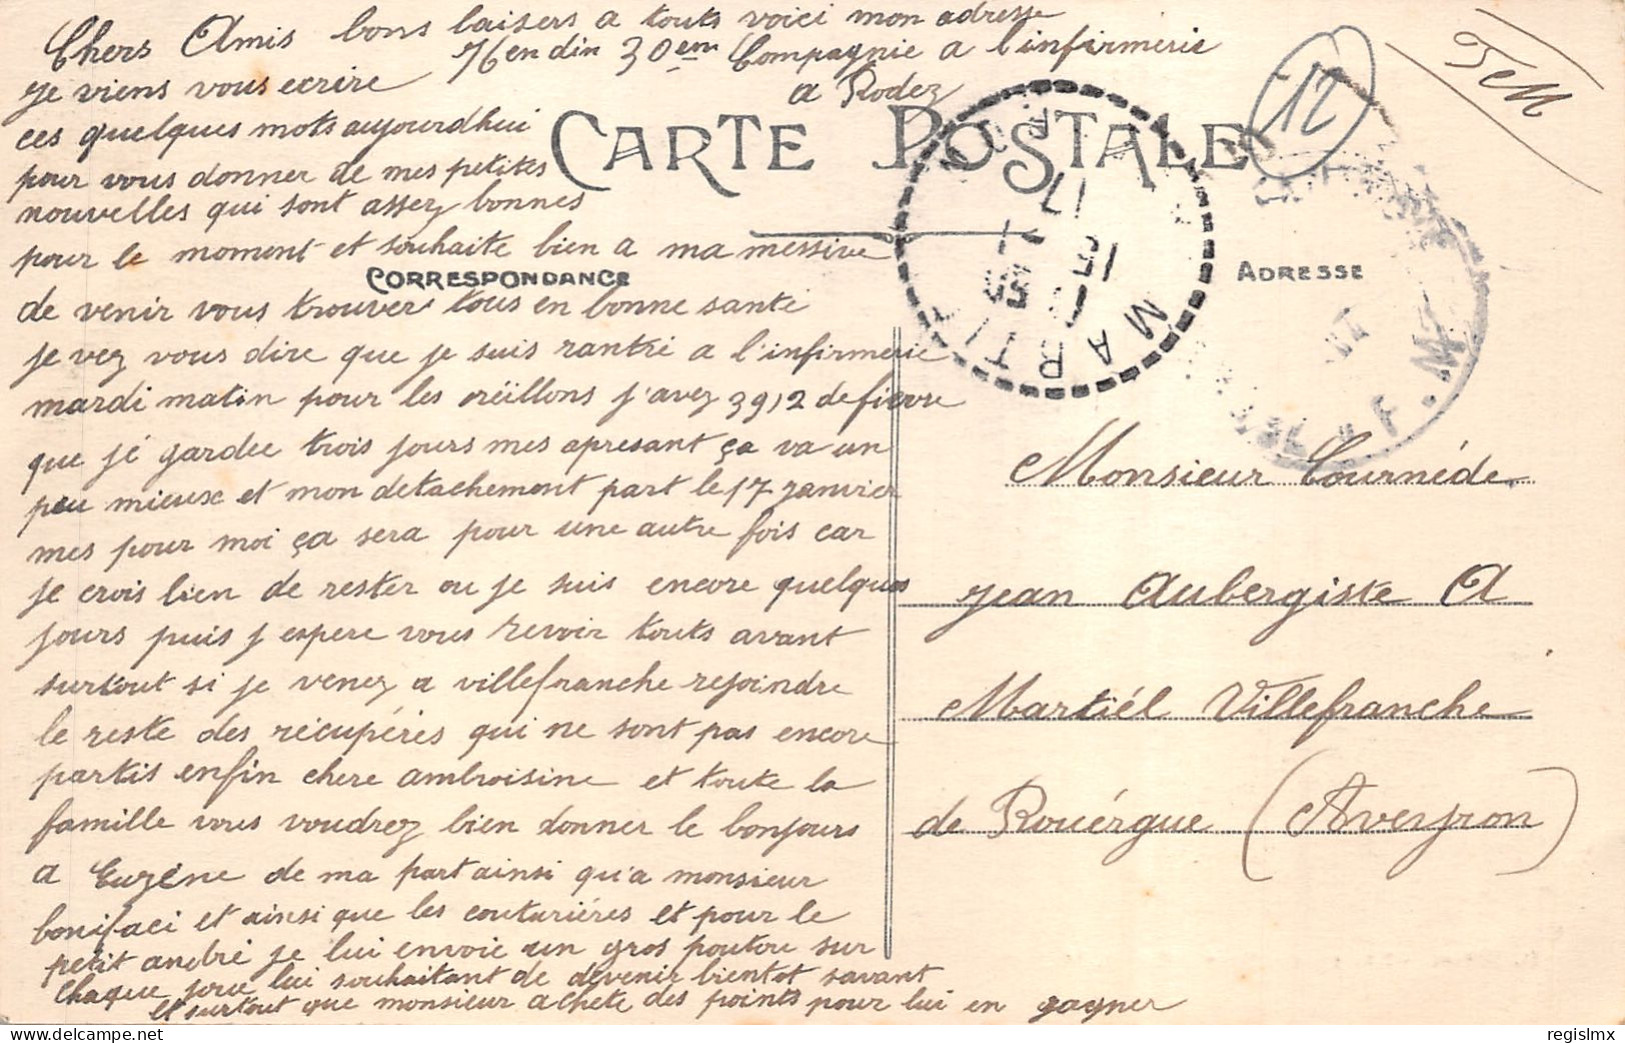 bons baisers a touts voici mon adresse
Hendin 30em Compagnie a l'infirmerie
a Rodez
12
CARTE POSTALE
Chers Amis
je viens vous ecrire
ces quelques mots aujourdhui
pour vous donner de mes petites
nouvelles qui sont assez bonnes
pour le moment et souhaite bien a ma messive
CORRESPONDANCE
de venir vous trouver tous en bonne santé
je vez vous dire que je suis rantré a l'infirmerie
mardi matin pour les oréillons j'avez 39,2 de fievre
que jé gardee trois jours mes apresant ça va un
peu mieux et mon detachement part le 17 janvier
mes pour moi ça sera pour une autre fois car
je crois bien de rester ou je suis encore quelques
jours puis j espere vous revoir touts avant
surtout si je venez a villefranche rejoindre
le reste des récupérés qui ne sont pas encore
partis enfin chere ambroisine et toute la
famille vous voudrez bien donner le bonjours
a Eugéne de ma part ainsi qu'a monsieur
bonifaci et ainsi que les couturiéres et pour le
petit andré je lui envoie un gros poutou sur
chaque joue lui souhaitant de devenir bientot savant
et surtout que monsieur achete des points pour lui en gagner
ADRESSE
MARTIEL
17
Monsieur Cournéde
jean Aubergiste A
Martiél Villefranche
de Rouérgue (Aveyron)
regislmx